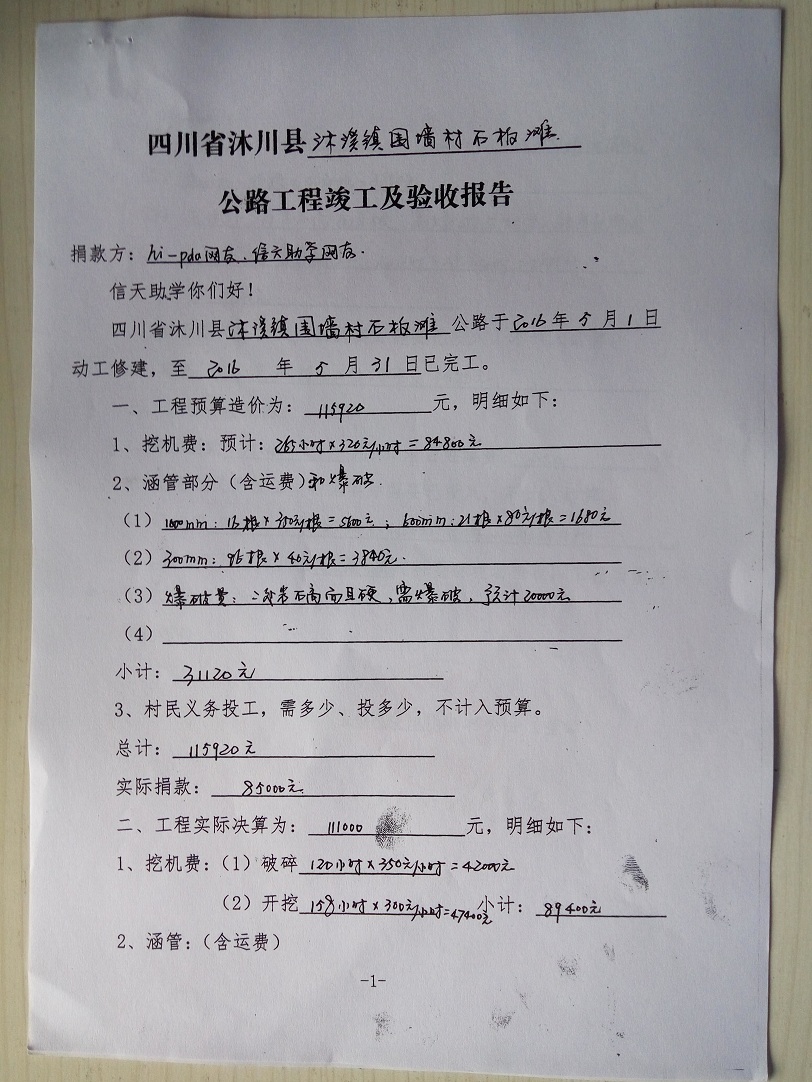 四川省沐川县沐溪镇围墙村石板滩
公路工程竣工及验收报告
捐款方：hi-pda网友、信天助学网友.
信天助学你们好！
四川省沐川县沐溪镇围墙村石板滩 公路于2016年5月1日
动工修建，至 2016 年 5 月 31 日已完工。
一、工程预算造价为：115920 元，明细如下：
1、挖机费：预计：265小时×320元/小时=84800元
2、涵管部分（含运费）和爆破.
（1）1000mm：16根×350元/根=5600元；600mm：21根×80元/根=1680元
（2）300mm：96根×40元/根=3840元.
（3）爆破费：岩石高而且硬，需爆破，预计20000元
（4）
小计：31120元
3、村民义务投工，需多少、投多少，不计入预算。
总计：115920元
实际捐款：85000元
二、工程实际决算为：111000 元，明细如下：
1、挖机费：（1）破碎 120小时×350元/小时=42000元
（2）开挖 158小时×300元/小时=47400元 小计：89400元
2、涵管：（含运费）
-1-